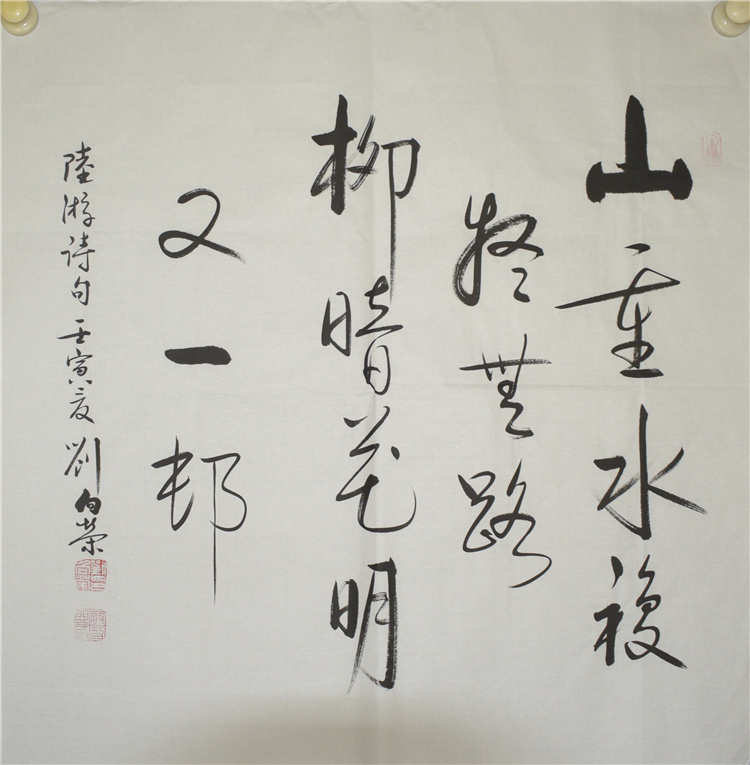 山重水複
疑無路
柳暗花明
又一邨
陸游诗句壬寅夏劉向荣